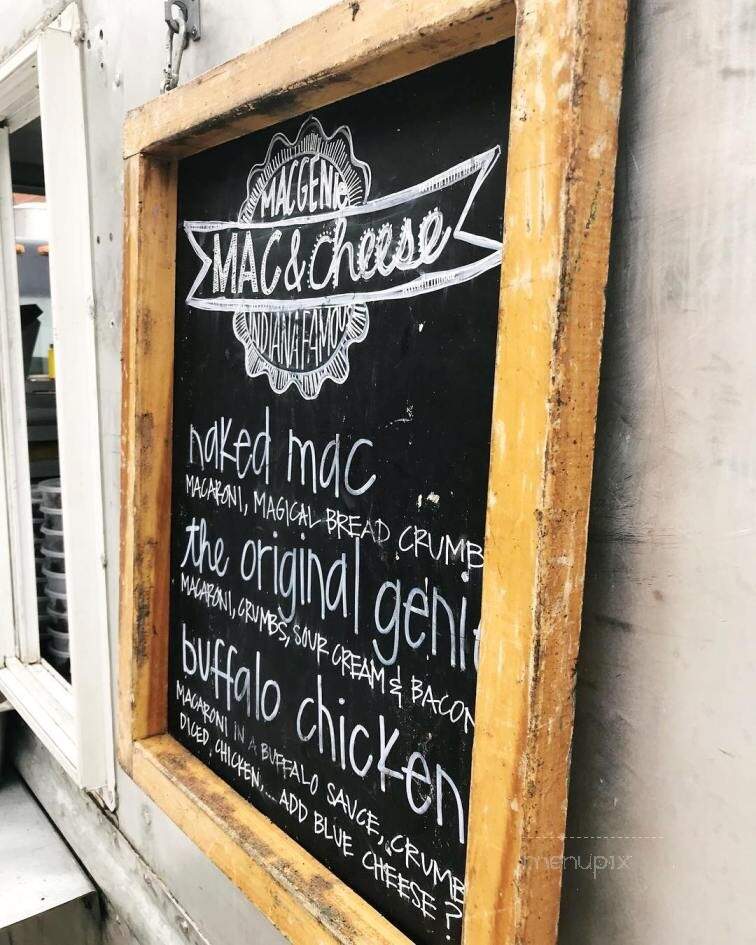 MACGENIE
MAC & cheese
INDIANA FAMOU
naked mac
MACARONI, MAGICAL BREAD CRUMB
the original geni
MACARONI, CRUMBS, SOUR CREAM & BACON
buffalo chicken
MACARONI IN A BUFFALO SAUCE, CRUMB
DICED, CHICKEN,... ADD BLUE CHEESE?
menupix